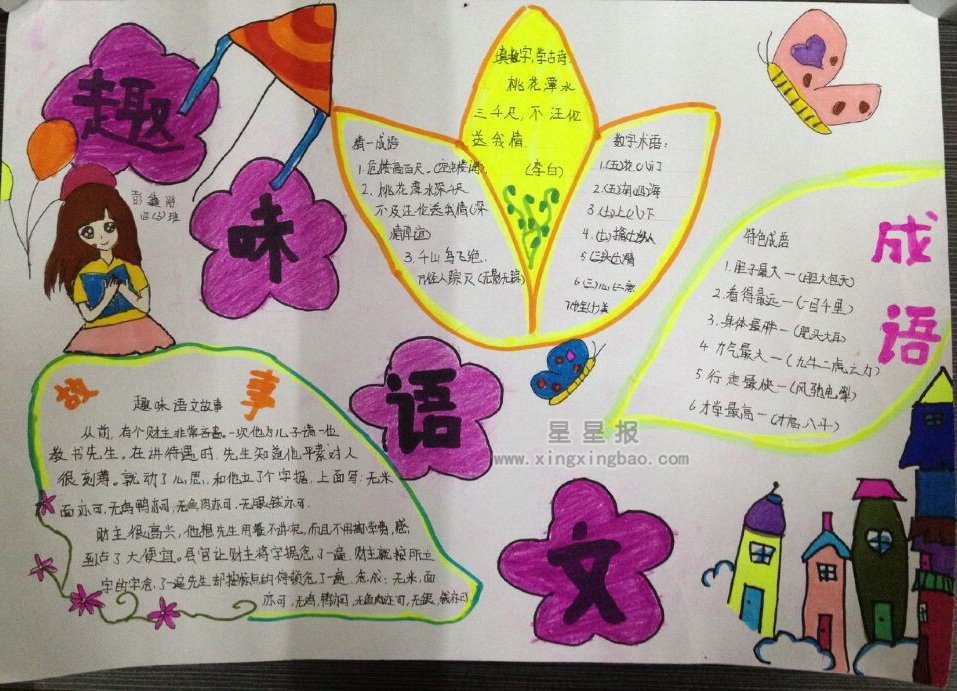 趣
味
语
文
填数字,学古诗
桃花潭水
三千尺,不
送我情.
(李白)
猜一成语
1.危楼高百尺.
2.桃花潭水深千尺
不及汪伦送我情(深
3.千山鸟飞绝.
万径人踪灭(无影无踪)
数字术语:
1.(五)花(八)门
2.(五)湖(四)海
3.(七)上(八)下
5(三)头(六)臂
6.(三)心(二)意
成
语
特色成语
1.胆子最大一(胆大包天)
2.看得最远一(一目千里)
3.身体最胖一(肥头大耳)
4.力气最大一(九牛二虎之力)
5行走最快一(风驰电掣)
6才学最高一(才高八斗)
故
事
趣味语文故事
从前,有个财主非常吝啬.一次他为儿子请一位
教书先生.在讲待遇时.先生知道他平素对人
很刻薄.就动了心思,和他立了个字据,上面写:无米
面亦可,无鸡鸭亦可,无鱼肉亦可,无银钱亦可.
财主很高兴,他想先生用餐不讲究,而且不用
到占了大便宜.县官让财主将字据念了一遍.财主就按所立
字的字念.了一遍先生却按标点的停顿念了一遍.念成:无米,面
亦可,无鸡,鸭亦可,无鱼肉亦可,无银,钱亦可
星星报
www.xingxingbao.com